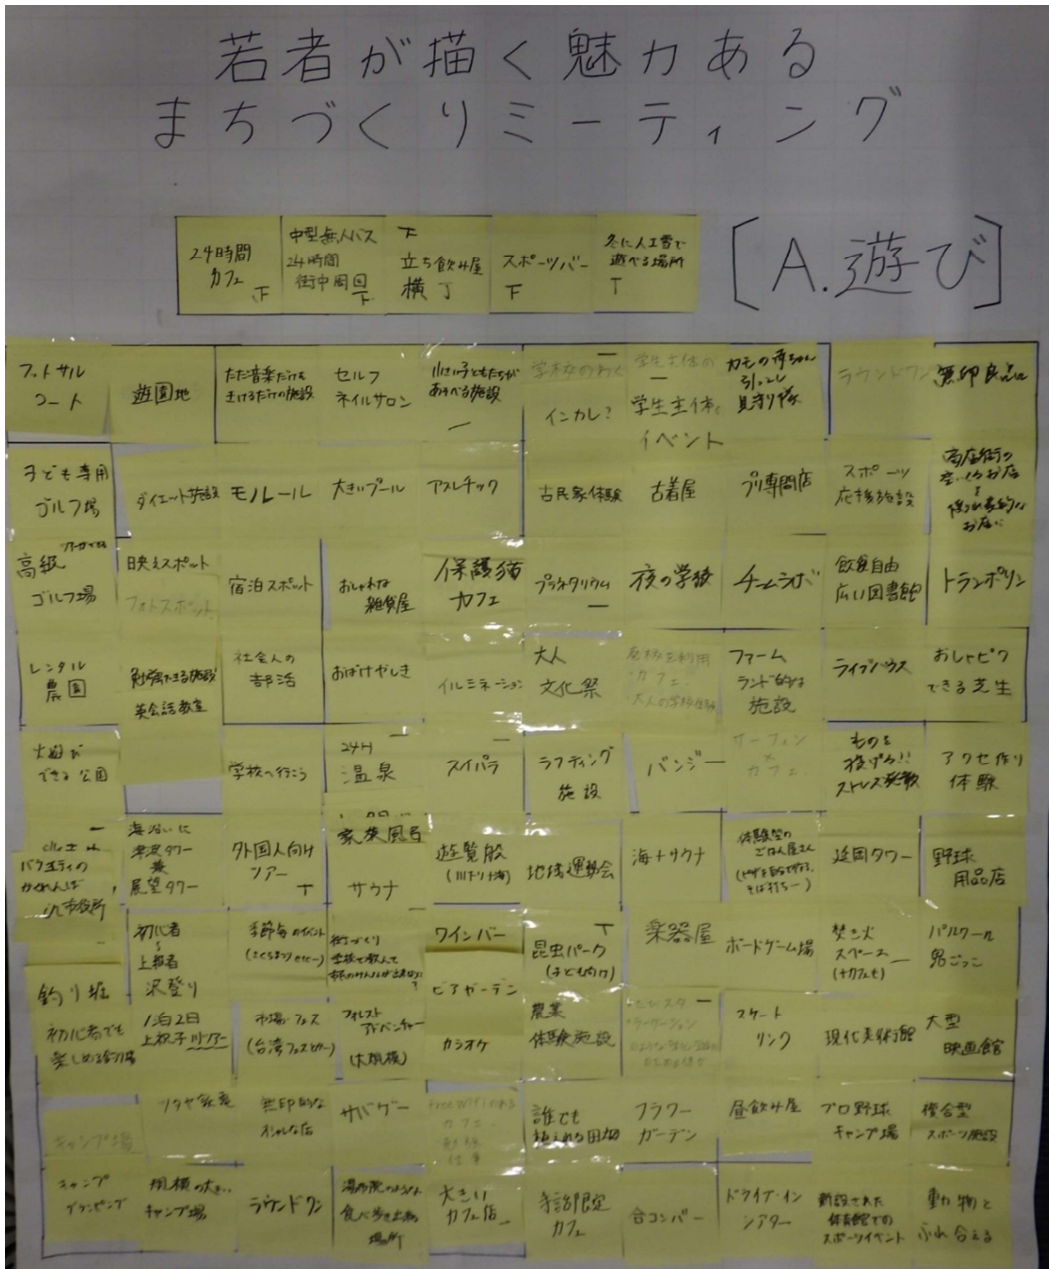 若者が描く魅力ある
まちづくりミーティング
[A.遊び]
24時間
カフェ
下
中型無人バス
24時間
街中周回
下
下
立ち飲み屋
横丁
スポーツバー
下
冬に人工雪で
遊べる場所
下
フットサル
コート
遊園地
ただ音楽だけを
きけるだけの施設
セルフ
ネイルサロン
小さい子どもたちが
あそべる施設
インカレ?
学生主体の
学生主体
イベント
カモの赤ちゃん
引っこし
見守り隊
ラウンドワン
無印良品
子ども専用
ゴルフ場
ダイエット施設
モノレール
大きいプール
アスレチック
古民家体験
古着屋
プリ専門店
スポーツ
応援施設
商店街の
お店に
高級
ゴルフ場
映えスポット
フォトスポット
宿泊スポット
おしゃれな
雑貨屋
保護猫
カフェ
プラネタリウム
夜の学校
チームラボ
飲食自由
広い図書館
トランポリン
レンタル
農園
勉強できる施設
英会話教室
社会人の
部活
おばけやしき
イルミネーション
大人
文化祭
廃校を利用
カフェ
ファーム
ランド的な
施設
ライブハウス
おしゃピク
できる芝生
火遊び
できる公園
学校へ行こう
24H
温泉
スイパラ
ラフティング
施設
バンジー
サーフィン
カフェ
ものを
投げる!!
ストレス発散
アクセ作り
体験
バラエティの
かくれんぼ
市役所
海沿いに
展望タワー
外国人向け
ツアー
下
家族風呂
サウナ
遊覧船
(川下り+海)
地域運動会
海+サウナ
体験型の
ごはん屋さん
延岡タワー
野球
用品店
釣り堀
初心者
~
上級者
沢登り
季節毎のイベント
街づくり
ワインバー
ビアガーデン
下
昆虫パーク
(子ども向け)
楽器屋
ボードゲーム場
焚き火
スペース
(+カフェも)
パルクール
鬼ごっこ
初心者でも
楽しめる釣り場
1泊2日
上祝子川ツアー
市場・フェス
(台湾フェスとか)
フォレスト
アドベンチャー
(大規模)
カラオケ
農業
体験施設
スケート
リンク
現代美術館
大型
映画館
キャンプ場
ツタヤ家電
無印的な
オシャレな店
サバゲー
free wifiのある
カフェ
勉強
仕事
誰でも
植えれる田畑
フラワー
ガーデン
昼飲み屋
プロ野球
キャンプ場
複合型
スポーツ施設
キャンプ
グランピング
規模の大きい
キャンプ場
ラウンドワン
湯布院のような
食べ歩き出来る
場所
大きい
カフェ店
手話限定
カフェ
合コンバー
ドライブ・イン
シアター
新設された
体育館での
スポーツイベント
動物と
ふれ合える